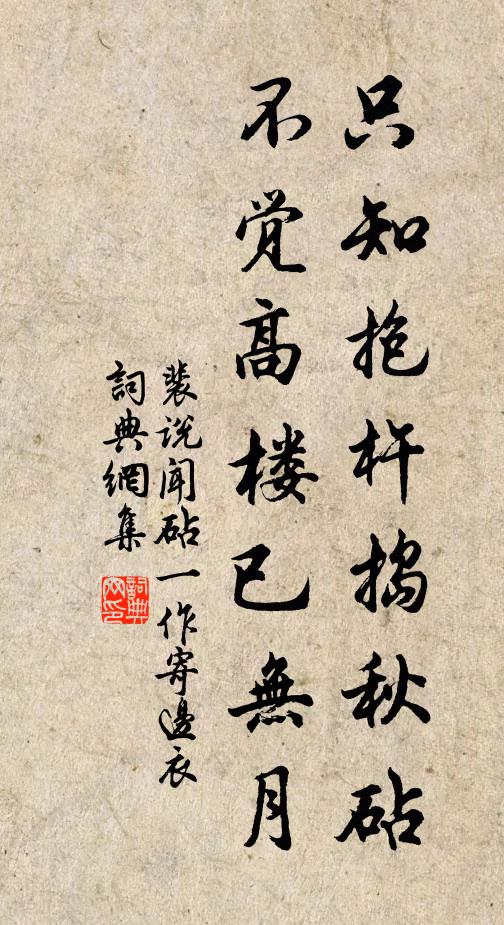 只知抱杵搗秋砧
不觉高楼已無月
裴说闻砧一作寄邊衣
詞典網集
詞典網印